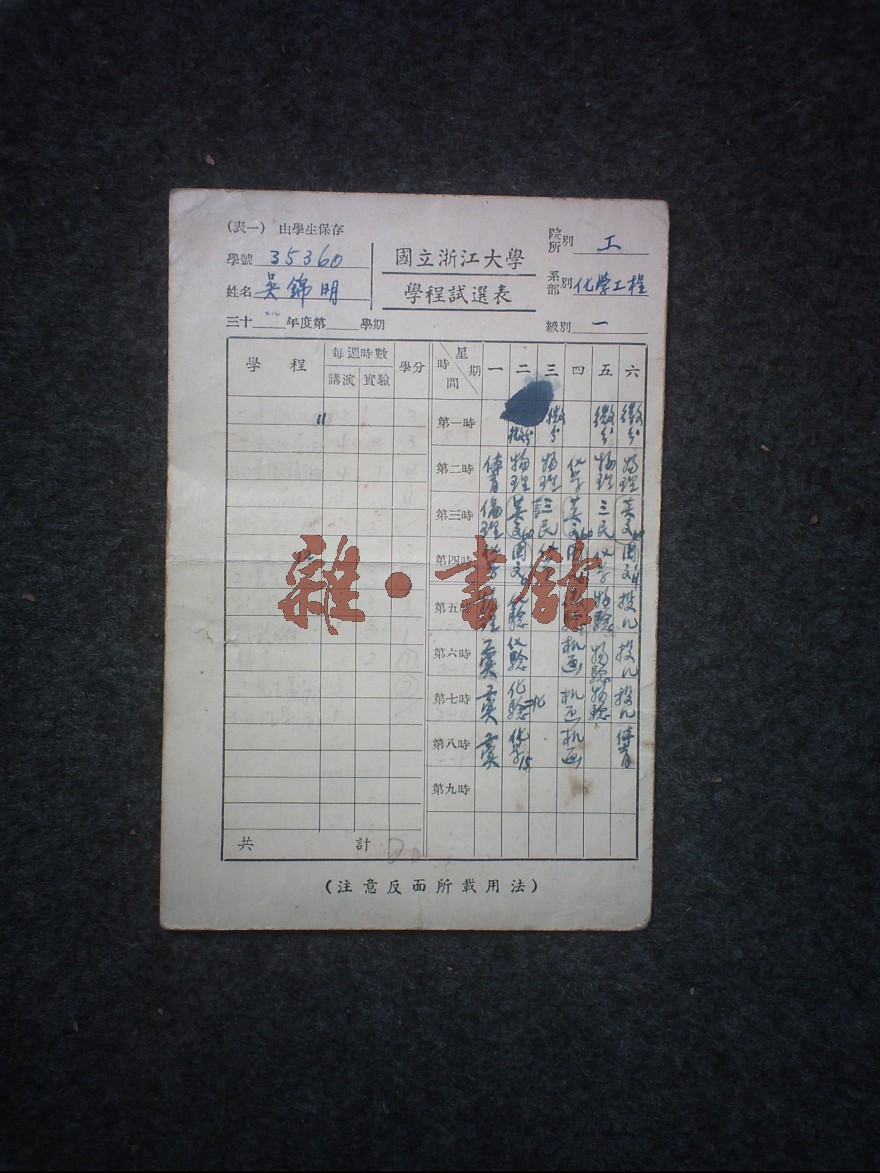 (表一) 由學生保存
學號 35360
姓名 吳錦明
三十 年度第 學期
國立浙江大學
學程試選表
院所別 工
系部別 化學工程
級別 一
學程 每週時數 學分 時間 星期 一 二 三 四 五 六
講演 實驗
第一時 微分 微分 微分 微分
第二時 体育 物理 物理 化学 物理 物理
第三時 倫理 英文 三民 英文 三民 英文
第四時 化学 國文 化学 國文
第五時 化驗 物驗 投几
第六時 化驗 机画 物驗 投几
第七時 化驗 机画 物驗 投几
第八時 化学 机画 体育
第九時
共計
(注意反面所載用法)
雜·書館